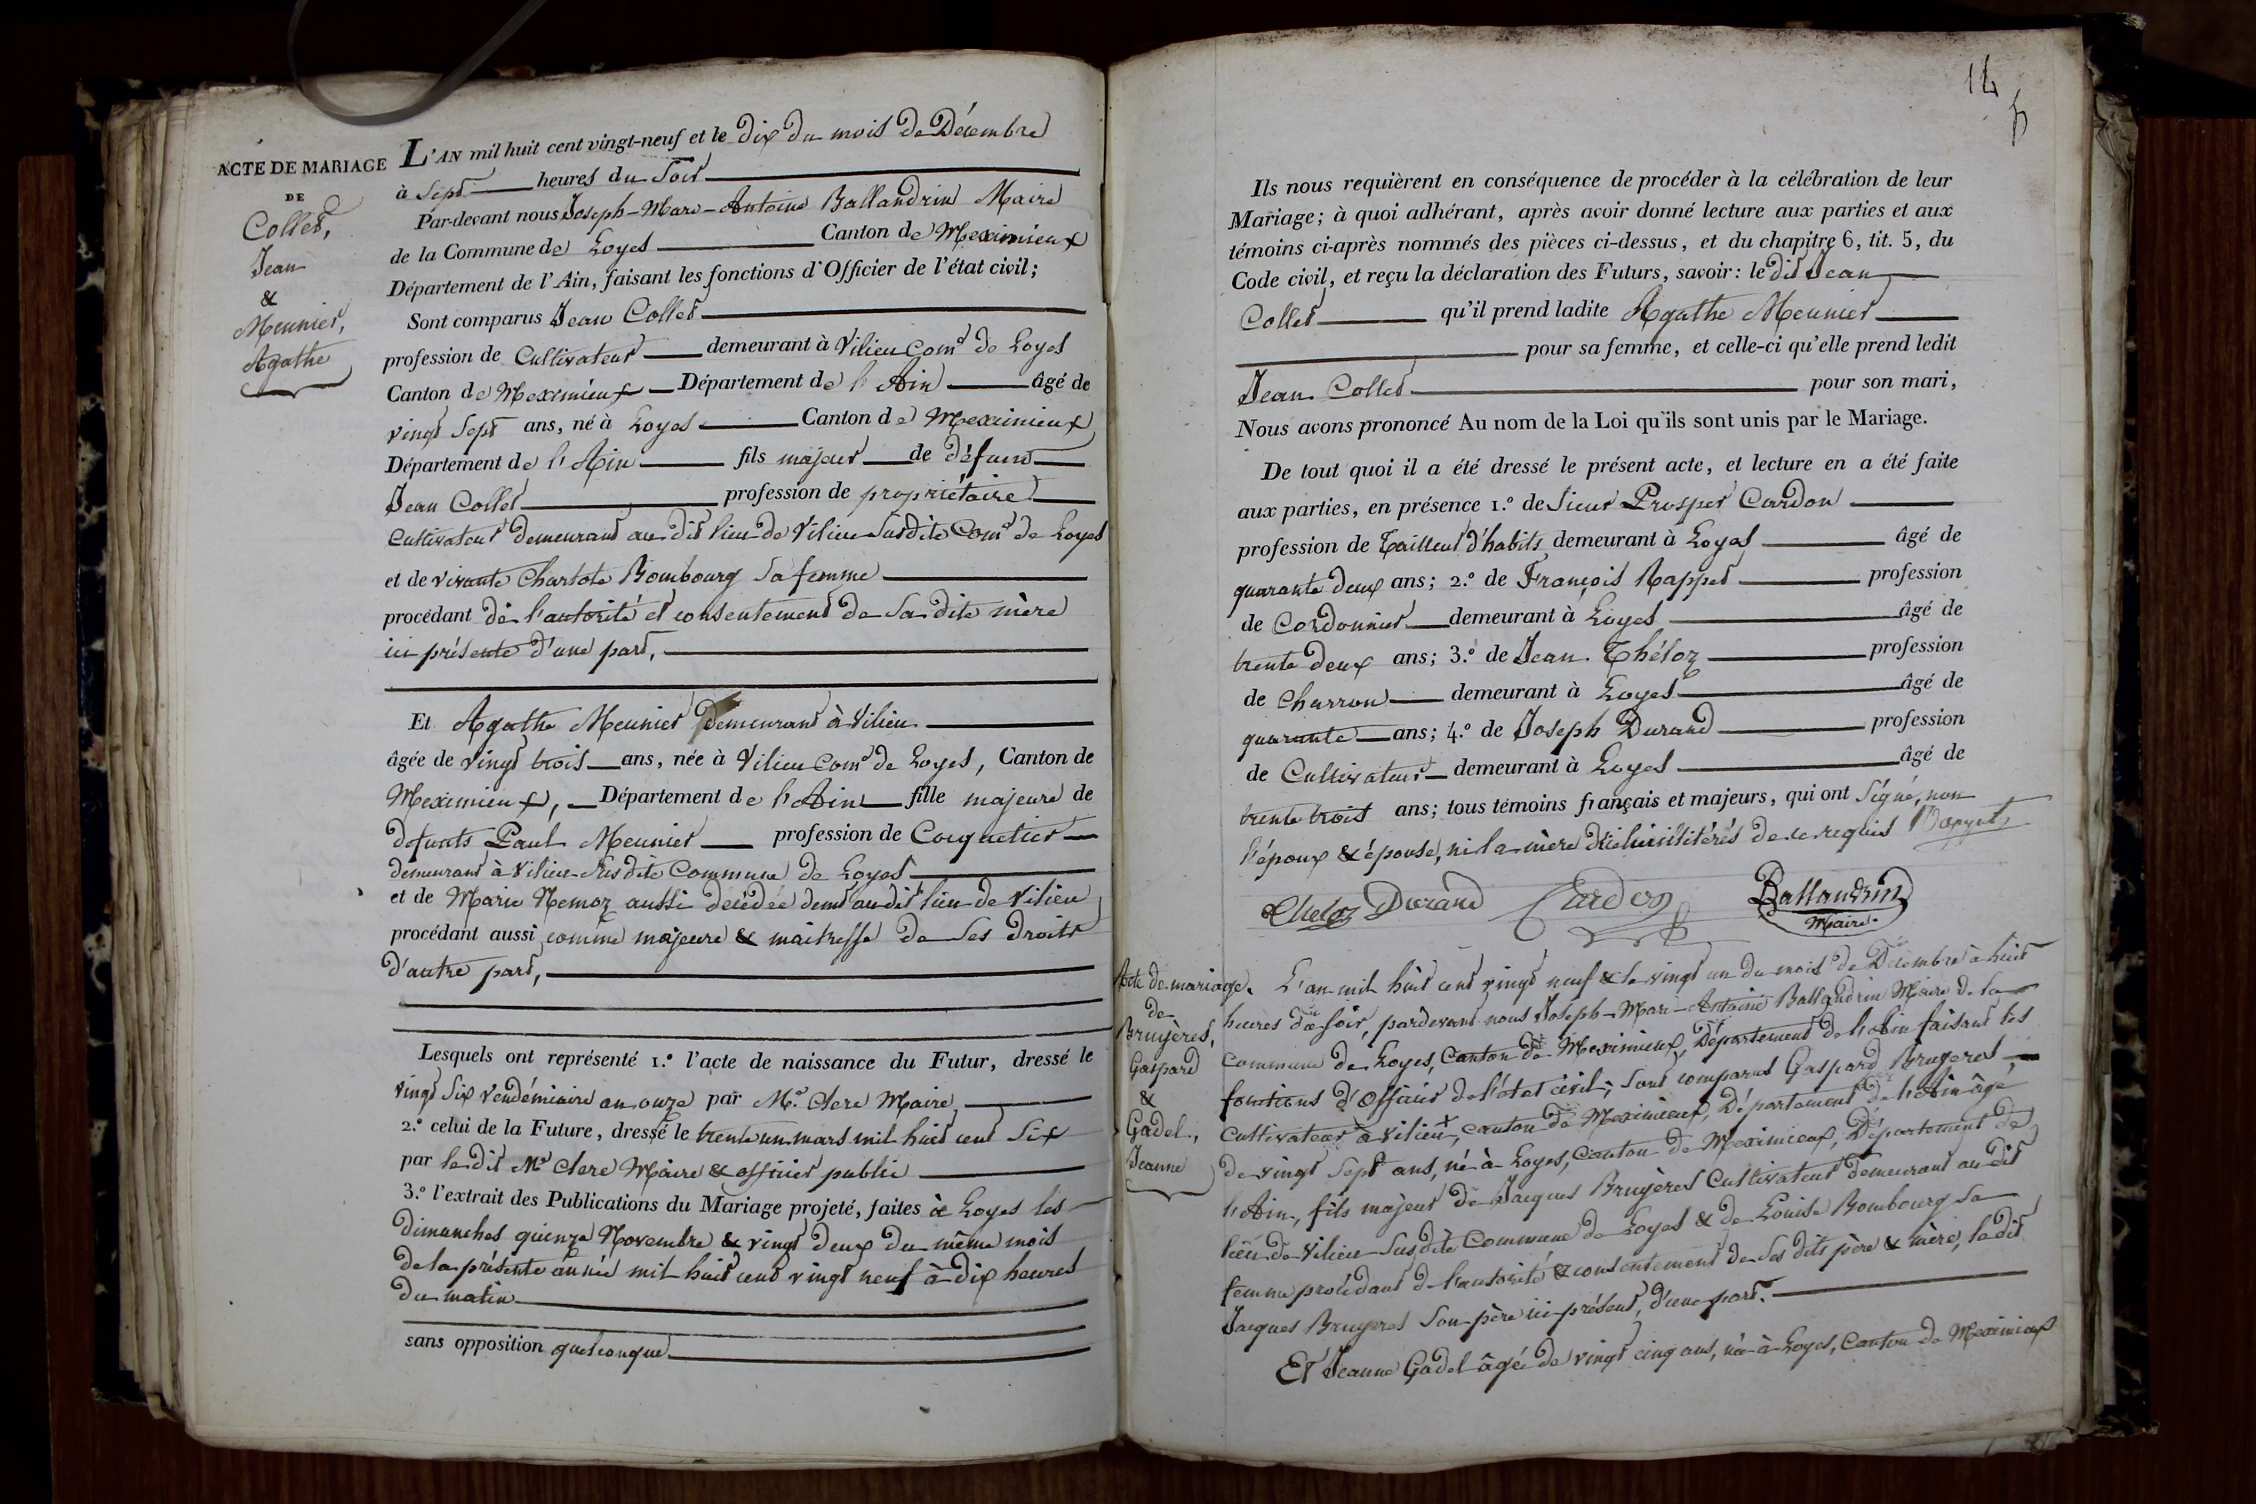 ACTE DE MARIAGE
DE
Collet,
Jean
&
Meunier,
Agathe
L'AN mil huit cent vingt-neuf et le dix du mois de Décembre
à Sept heures du Soir
Par-devant nous Joseph-Marc-Antoine Ballandrin Maire
de la Commune de Loyes Canton de Meximieux
Département de l'Ain, faisant les fonctions d'Officier de l'état civil;
Sont comparus Jean Collet
profession de Cultivateur demeurant à Vilieu Com.e de Loyes
Canton de Meximieux Département de l'Ain âgé de
vingt Sept ans, né à Loyes Canton de Meximieux
Département de l'Ain fils majeur de défunt
Jean Collet profession de propriétaire
Cultivateur demeurant au dit lieu de Vilieu Susdite Com.e de Loyes
et de vivante Charlote Bombourg Sa femme
procédant de l'autorité et consentement de Sa dite mère
ici présente d'une part,
Et Agathe Meunier demeurant à Vilieu
âgée de vingt trois ans, née à Vilieu Com.e de Loyes, Canton de
Meximieux, Département de l'Ain fille majeure de
defunts Paul Meunier profession de Coquetier
demeurant à Vilieu Susdite Commune de Loyes
et de Marie Nemoz aussi décédée demt au dit lieu de Vilieu
procédant aussi comme majeure & maitresse de Ses droits
d'autre part,
Lesquels ont représenté 1.º l'acte de naissance du Futur, dressé le
vingt Six vendémiaire an onze par M.e Clerc Maire
2.º celui de la Future, dressé le trente un mars mil huit cent Six
par le dit M.e Clerc Maire & officier public
3.º l'extrait des Publications du Mariage projeté, faites à Loyes les
dimanches quinze Novembre & vingt deux du même mois
de la présente année mil huit cent vingt neuf à dix heures
du matin
sans opposition quelconque
14
Ils nous requièrent en conséquence de procéder à la célébration de leur
Mariage; à quoi adhérant, après avoir donné lecture aux parties et aux
témoins ci-après nommés des pièces ci-dessus, et du chapitre 6, tit. 5, du
Code civil, et reçu la déclaration des Futurs, savoir: le dit Jean
Collet qu'il prend ladite Agathe Meunier
pour sa femme, et celle-ci qu'elle prend ledit
Jean Collet pour son mari,
Nous avons prononcé Au nom de la Loi qu'ils sont unis par le Mariage.
De tout quoi il a été dressé le présent acte, et lecture en a été faite
aux parties, en présence 1.º de Sieur Prosper Cardon
profession de Tailleur d'habits demeurant à Loyes âgé de
quarante deux ans; 2.º de François Rappet profession
de Cordonnier demeurant à Loyes âgé de
trente deux ans; 3.º de Jean Théloz profession
de Charron demeurant à Loyes âgé de
quarante ans; 4.º de Joseph Durand profession
de Cultivateur demeurant à Loyes âgé de
trente trois ans; tous témoins français et majeurs, qui ont Signé, non
l'époux & épouse, ni la mère de celui-ci illitérés de ce requis
Cheloz Durand Cardon Ballandrin
Maire.
Acte de mariage.
de
Bruyères,
Gaspard
&
Gadel,
Jeanne
L'an mil huit cent vingt neuf & le vingt un du mois de Décembre à huit
heures du soir, pardevant nous Joseph-Marc-Antoine Ballandrin Maire de la
commune de Loyes, Canton de Meximieux, Département de l'Ain faisant les
fonctions d'Officier de l'état civil; Sont comparus Gaspard Bruyeres
Cultivateur à Vilieu, canton de Meximieux, Département de l'Ain âgé
de vingt Sept ans, né à Loyes, Canton de Meximieux, Département de
l'Ain, fils majeur de Jacques Bruyères Cultivateur demeurant au dit
lieu de Vilieu Susdite Commune de Loyes & de Louise Bombourg Sa
femme procédant de l'autorité & consentement de Ses dits père & mère, le dit
Jacques Bruyeres Son père ici présent, d'une part.
Et Jeanne Gadel âgée de vingt cinq ans, née à Loyes, Canton de Meximieux